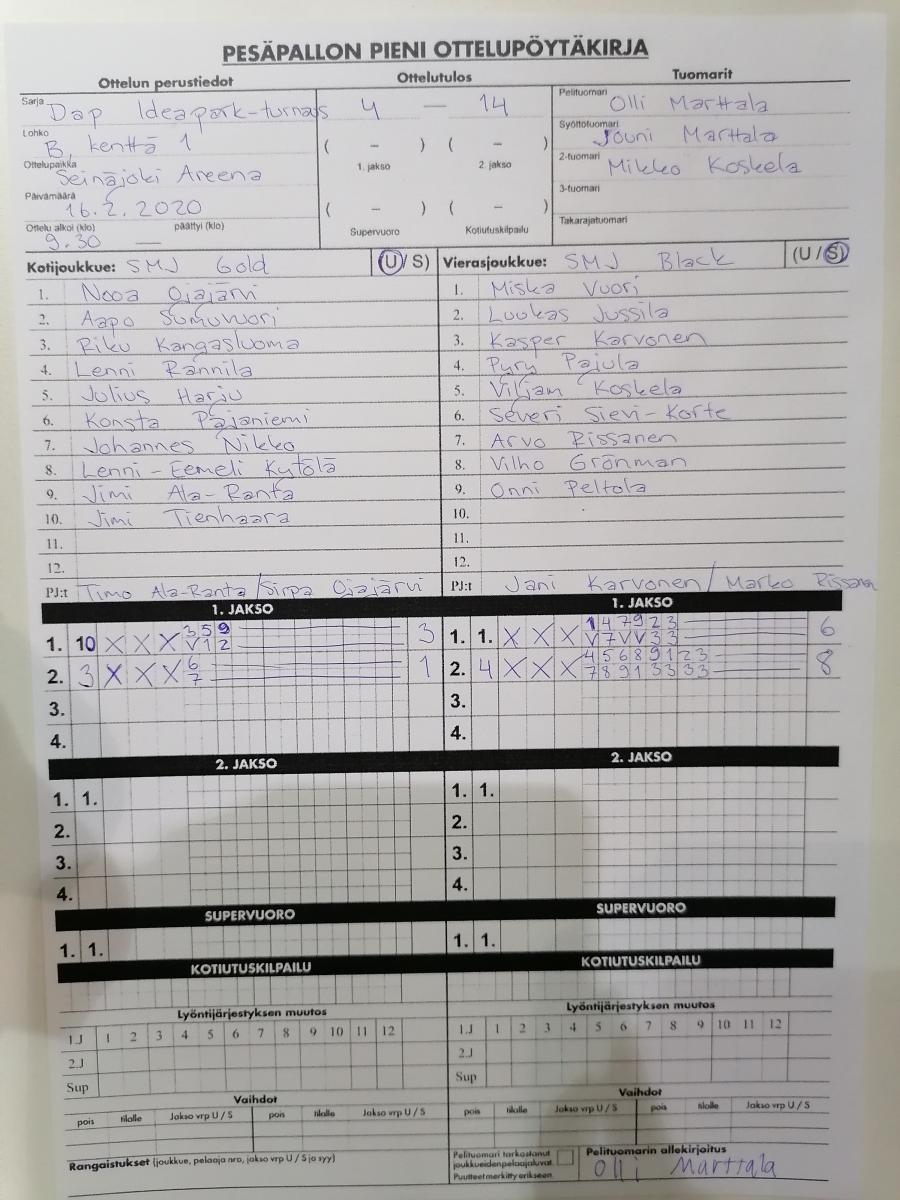 PESÄPALLON PIENI OTTELUPÖYTÄKIRJA
Ottelun perustiedot Ottelutulos Tuomarit
Sarja Dap Ideapark-turnaus 4 — 14 Pelituomari Olli Marttala
Lohko B, kenttä 1 ( – ) ( – ) Syöttötuomari Jouni Marttala
Ottelupaikka Seinäjoki Areena 1. jakso 2. jakso 2-tuomari Mikko Koskela
Päivämäärä 16.2.2020 ( – ) ( – ) 3-tuomari
Ottelu alkoi (klo) päättyi (klo) Supervuoro Kotiutuskilpailu Takarajatuomari
9.30 —
Kotijoukkue: SMJ Gold (U/S) Vierasjoukkue: SMJ Black (U/S)
1. Nooa Ojajärvi 1. Miska Vuori
2. Aapo Somuvuori 2. Luukas Jussila
3. Riku Kangasluoma 3. Kasper Karvonen
4. Lenni Rännila 4. Pyry Pajula
5. Julius Harju 5. Viljam Koskela
6. Konsta Pajaniemi 6. Severi Sievi-Korte
7. Johannes Nikko 7. Arvo Rissanen
8. Lenni-Eemeli Kytölä 8. Vilho Grönman
9. Jimi Ala-Ranta 9. Onni Peltola
10. Jimi Tienhaara 10.
11. 11.
12. 12.
PJ:t Timo Ala-Ranta/Sirpa Ojajärvi PJ:t Jani Karvonen/Marko Rissanen
1. JAKSO 1. JAKSO
3 5 9 1 4 7 9 2 3
1. 10 X X X V 1 2 3 1. 1. X X X V 7 V V 3 3 6
6 4 5 6 8 9 1 2 3
2. 3 X X X 7 1 2. 4 X X X 7 8 9 1 3 3 3 3 8
3. 3.
4. 4.
2. JAKSO 2. JAKSO
1. 1. 1. 1.
2. 2.
3. 3.
4. 4.
SUPERVUORO SUPERVUORO
1. 1. 1. 1.
KOTIUTUSKILPAILU KOTIUTUSKILPAILU
Lyöntijärjestyksen muutos Lyöntijärjestyksen muutos
1.J 1 2 3 4 5 6 7 8 9 10 11 12 1.J 1 2 3 4 5 6 7 8 9 10 11 12
2.J 2.J
Sup Sup
Vaihdot Vaihdot
pois tilalle Jakso vrp U / S pois tilalle Jakso vrp U / S pois tilalle Jakso vrp U / S pois tilalle Jakso vrp U / S
Rangaistukset (joukkue, pelaaja nro, jakso vrp U / S ja syy) Pelituomari tarkastanut Pelituomarin allekirjoitus
joukkueidenpelaajaluvat. Olli Marttala
Puutteet merkitty erikseen.